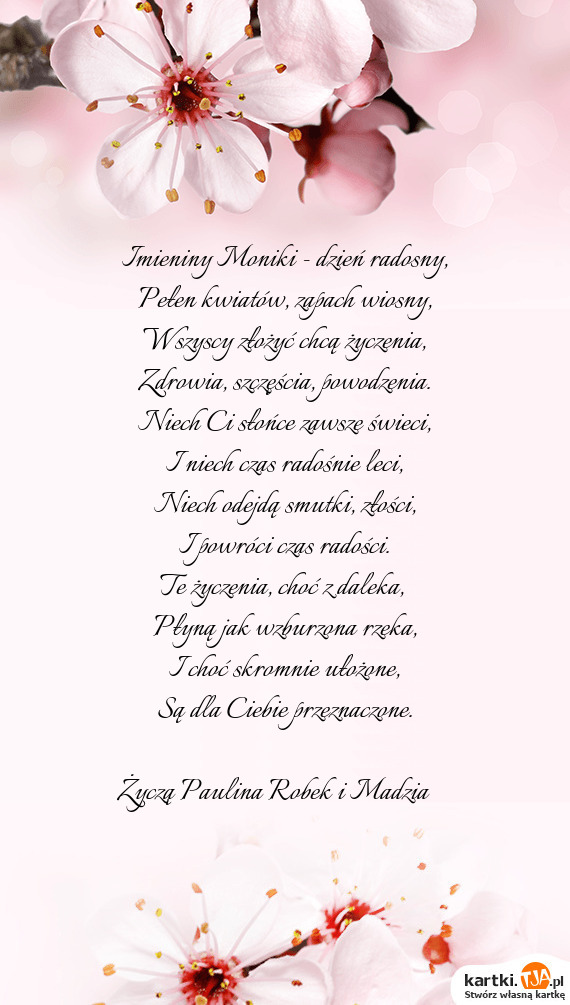 Imieniny Moniki - dzień radosny,
Pełen kwiatów, zapach wiosny,
Wszyscy złożyć chcą życzenia,
Zdrowia, szczęścia, powodzenia.
Niech Ci słońce zawsze świeci,
I niech czas radośnie leci,
Niech odejdą smutki, złości,
I powróci czas radości.
Te życzenia, choć z daleka,
Płyną jak wzburzona rzeka,
I choć skromnie ułożone,
Są dla Ciebie przeznaczone.
Życzą Paulina Robek i Madzia
kartki.TJA.pl
Stwórz własną kartkę